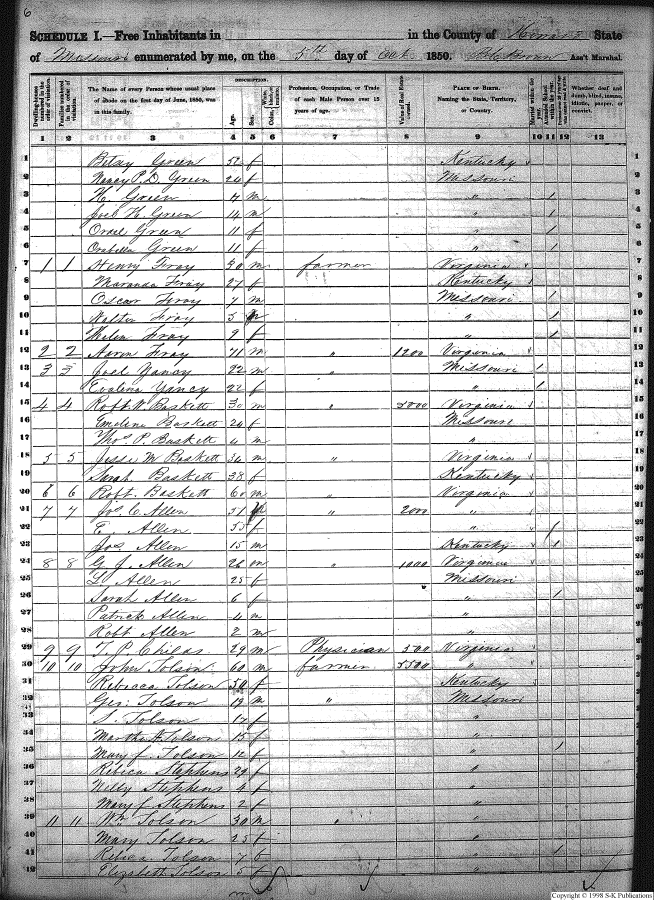 6
SCHEDULE I.—Free Inhabitants in in the County of Howard State
of Missouri enumerated by me, on the 5th day of Oct 1850. Ass't Marshal.
Dwelling-houses numbered in the order of visitation.
Families numbered in the order of visitation.
The Name of every Person whose usual place of abode on the first day of June, 1850, was in this family.
DESCRIPTION.
Age.
Sex.
Color, White, black, or mulatto.
Profession, Occupation, or Trade of each Male Person over 15 years of age.
Value of Real Estate owned.
PLACE OF BIRTH. Naming the State, Territory, or Country.
Married within the year.
Attended School within the year.
Whether deaf and dumb, blind, insane, idiotic, pauper, or convict.
1 2 3 4 5 6 7 8 9 10 11 12 13
1 Betsy Green f Kentucky 1
2 Nancy P. D. Green 26 f Missouri 2
3 H. Green m " 1 3
4 Joel H. Green 14 m " 1 4
5 Green 11 f " 1 5
6 Orabella Green 11 f " 1 6
7 1 1 Henry Fray 30 m farmer Virginia 7
8 Maranda Fray 27 f Kentucky 8
9 Oscar Fray 7 m Missouri 1 9
10 Walter Fray 5 m " 1 10
11 Helen Fray 9 f " 1 11
12 2 2 Aaron Fray 71 m " 1200 Virginia 12
13 3 3 Joel Yancy 22 m " Missouri 1 13
14 Evalina Yancy 22 f " 1 14
15 4 4 Robt. W. Baskett 30 m " Virginia 15
16 Emeline Baskett 26 f Missouri 16
17 Thos. P. Baskett 4 m " 17
18 5 5 Jesse M Baskett 36 m " Virginia 18
19 Sarah Baskett 38 f Kentucky 19
20 6 6 Robt. Baskett 60 m Virginia 20
21 7 7 Jos. C. Allen 51 " 2000 " 21
22 Allen 55 f " 22
23 Jos. Allen 15 m Kentucky 1 23
24 8 8 G. J. Allen 26 m " 1000 Virginia 24
25 L. Allen 25 f Missouri 25
26 Sarah Allen 6 f " 1 26
27 Patrick Allen 4 m " 27
28 Robt Allen 2 m " 28
29 9 9 T. P. Childs 29 m Physician 500 Virginia 29
30 10 10 John Tolson 60 m farmer 5500 " 30
31 Rebecca Tolson 50 f Kentucky 31
32 Geo. Tolson 19 m " Missouri 32
33 S. Tolson 17 f " 33
34 Martha H. Tolson 15 f " 34
35 Mary f. Tolson 12 f " 1 35
36 Rebeca Stephens 29 f " 36
37 Stephens 4 f " 37
38 Mary f Stephens 2 f " 38
39 11 11 Wm. Tolson 30 m " " 39
40 Mary Tolson 25 f " 40
41 Rebeca Tolson 7 f " 1 41
42 Elizabeth Tolson 5 f " 42
Copyright © 1998 S-K Publications